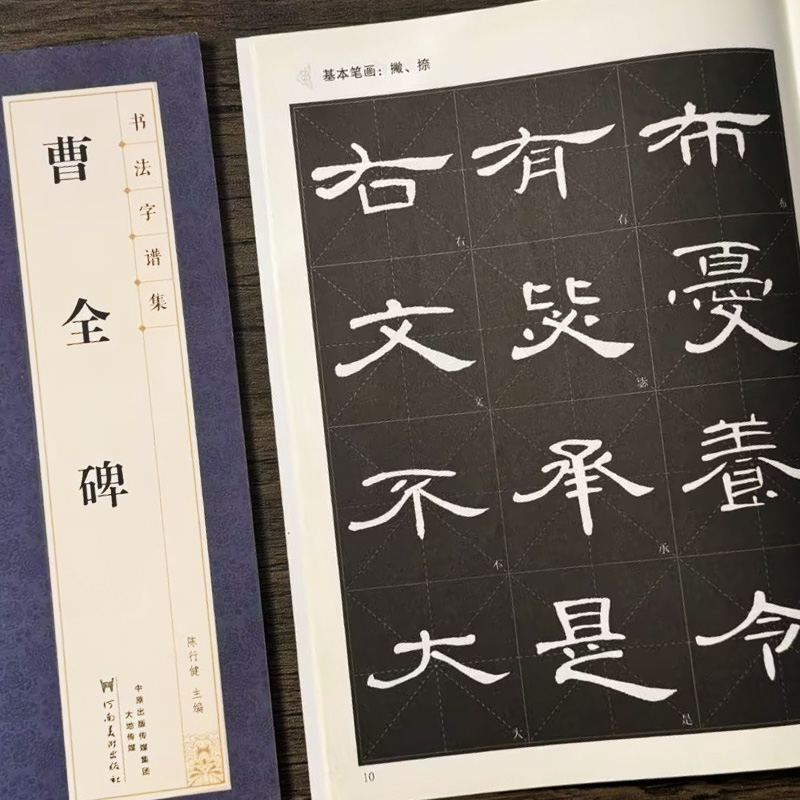 曹全碑
书法字谱集
陈行健 主编
河南美术出版社
中原出版传媒集团
大地传媒
基本笔画：撇、捺
右 有 布
右 有 布
文 毖 憂
文 毖
不 承 養
不 承
大 是 令
大 是
10